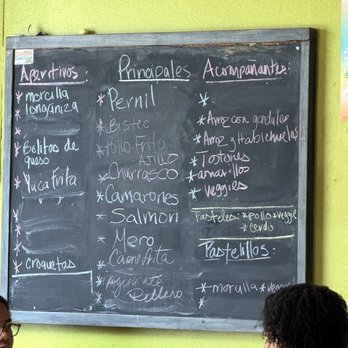 Aperitivos:
* morcilla
longaniza
*
*
Bolitos de
queso
* Yuca Frita
*
*
*
*
* Croquetas
Principales
* Pernil
* Bistec
* Pollo Frito
Ajillo
* Churrasco
* Camarones
* Salmon
* Mero
* Carne Frita
* Aguacate
Relleno
Acompañantes:
*
* Arroz con gandules
* Arroz y Habichuelas
* Tostones
* amarillos
* veggies
Pasteles: * pollo * veggie
* cerdo
Pastelillos:
* morcilla * veggie